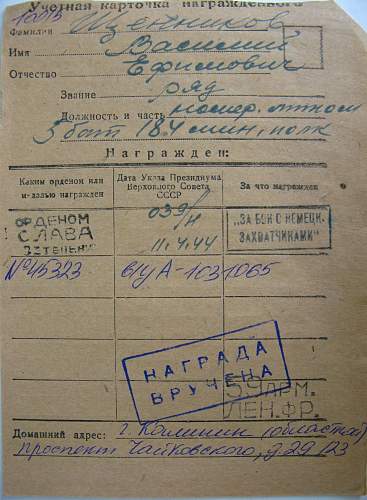 Учетная карточка награжденного
Фамилия Щенников
Имя Василий
Отчество Ефимович
Звание ряд
Должность и часть номер. мином
3 бат 184 мин. полк
Награжден:
Каким орденом или медалью награжден
Дата Указа Президиума Верховного Совета СССР
За что награжден
ОРДЕНОМ
СЛАВА
3 СТЕПЕНИ
039/н
11.4.44
„ЗА БОИ С НЕМЕЦК.
ЗАХВАТЧИКАМИ"
№45323
в/у А-1031065
НАГРАДА
ВРУЧЕНА
59 АРМ.
ЛЕН.ФР.
Домашний адрес: г. Калинин (областной)
проспект Чайковского, д 29/23